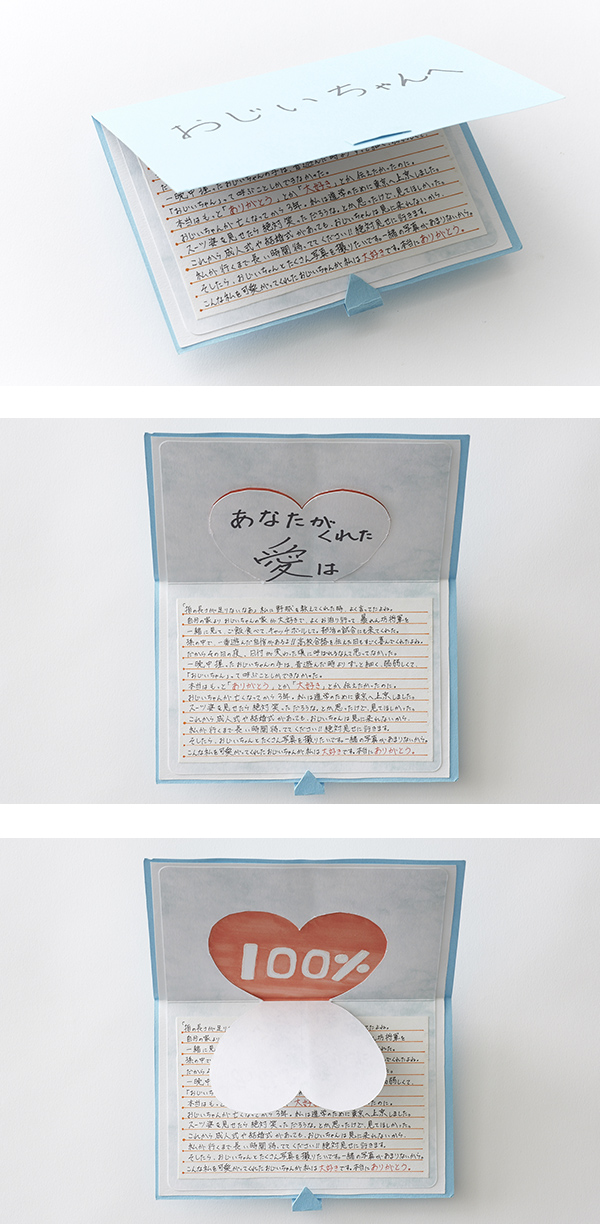 おじいちゃんへ
一晩中握ったおじいちゃんの手は、昔遊んだ時
「おじいちゃん」って呼ぶことしかできなかった。
本当はもっと「ありがとう」とか「大好き」とか伝えたかったのに。
おじいちゃんが亡くなってから3年。私は進学のために東京へ上京しました。
スーツ姿を見せたら絶対笑っただろうな。とか思ったけど、見てほしかった。
これから成人式や結婚式があっても、おじいちゃんは見に来れないから、
私が行くまで長い時間待っててください!!絶対見せに行きます。
そしたら、おじいちゃんとたくさん写真を撮りたいです。一緒の写真があまりないから。
こんな私を可愛がってくれたおじいちゃんが私は大好きです。本当にありがとう。
あなたが
くれた
愛は
「指の長さが足りないなあ」私に野球を教えてくれた時、よく言ってたよね。
自分の家よりおじいちゃんの家が大好きで、よくお泊り行って、暴れん坊将軍を
一緒に見て、ご飯食べて、キャッチボールして。部活の試合にも来てくれた。
孫の中で、一番遊んだ自信があるよ!!高校合格を伝えた日もすごく喜んでくれたよね。
だからその日の夜、日付が変わった頃に呼ばれるなんて思ってなかった。
一晩中握ったおじいちゃんの手は、昔遊んだ時よりずっと細く、弱弱しくて、
「おじいちゃん」って呼ぶことしかできなかった。
本当はもっと「ありがとう」とか「大好き」とか伝えたかったのに。
おじいちゃんが亡くなってから3年。私は進学のために東京へ上京しました。
スーツ姿を見せたら絶対笑っただろうな。とか思ったけど、見てほしかった。
これから成人式や結婚式があっても、おじいちゃんは見に来れないから、
私が行くまで長い時間待っててください!!絶対見せに行きます。
そしたら、おじいちゃんとたくさん写真を撮りたいです。一緒の写真があまりないから。
こんな私を可愛がってくれたおじいちゃんが私は大好きです。本当にありがとう。
100%
「指の長さが足り てたよね。
自分の家より 坊将軍を
一緒に見 くれた。
孫の中で くれたよね。
だから かった。
一晩中 弱しくて、
「おじい
本当はも たのに。
おじいちゃんが亡くなってから3年。私は進学のために東京へ上京しました。
スーツ姿を見せたら絶対笑っただろうな。とか思ったけど、見てほしかった。
これから成人式や結婚式があっても、おじいちゃんは見に来れないから、
私が行くまで長い時間待っててください!!絶対見せに行きます。
そしたら、おじいちゃんとたくさん写真を撮りたいです。一緒の写真があまりないから。
こんな私を可愛がってくれたおじいちゃんが私は大好きです。本当にありがとう。